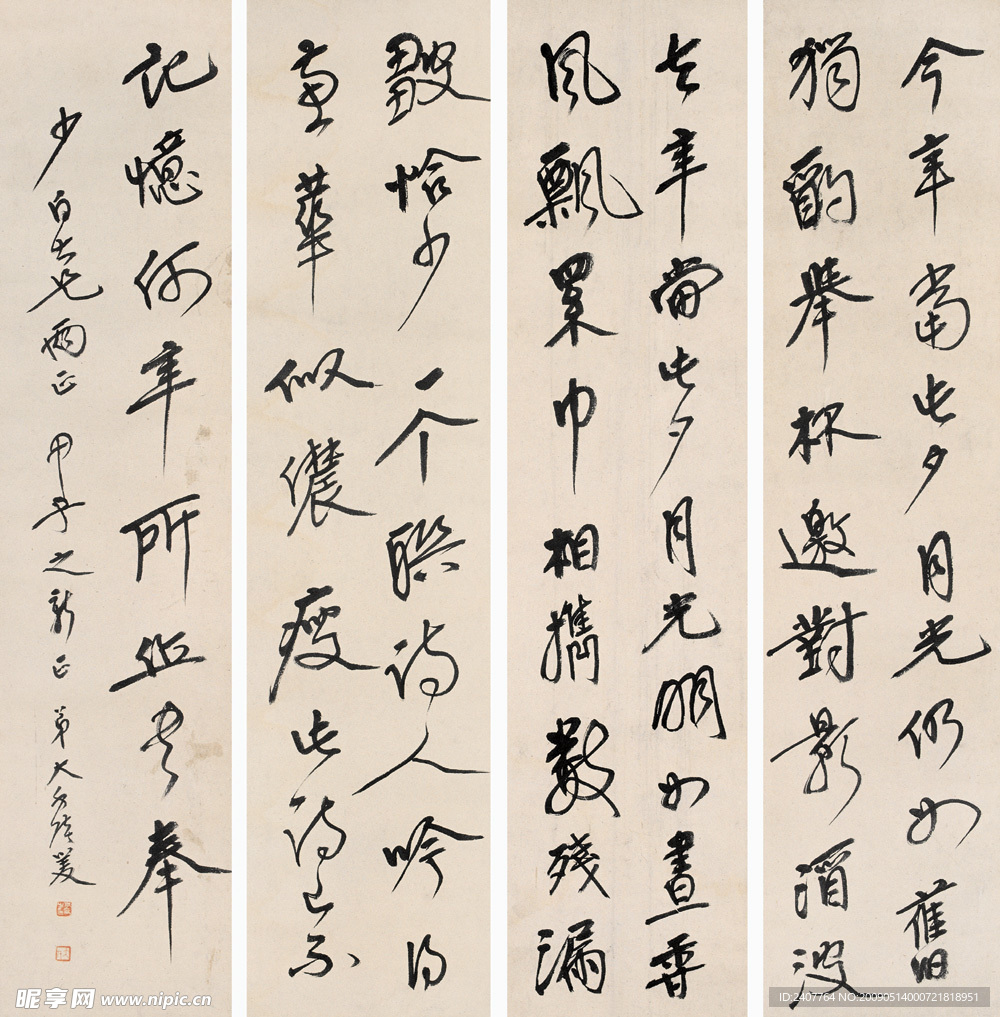 今年當此夕月光仍如舊
獨酌舉杯邀對影酒波
去年當此夕月光明如晝香
風飄羅巾相攜數殘漏
皺恰少一个聯詩人吟得
黃華似儂瘦此詩已不
記憶何年所作書奉
少白大兄兩正 甲子之新正 弟大千張爰
昵享网 www.nipic.cn
ID:2407764 NO:20090514000721818951